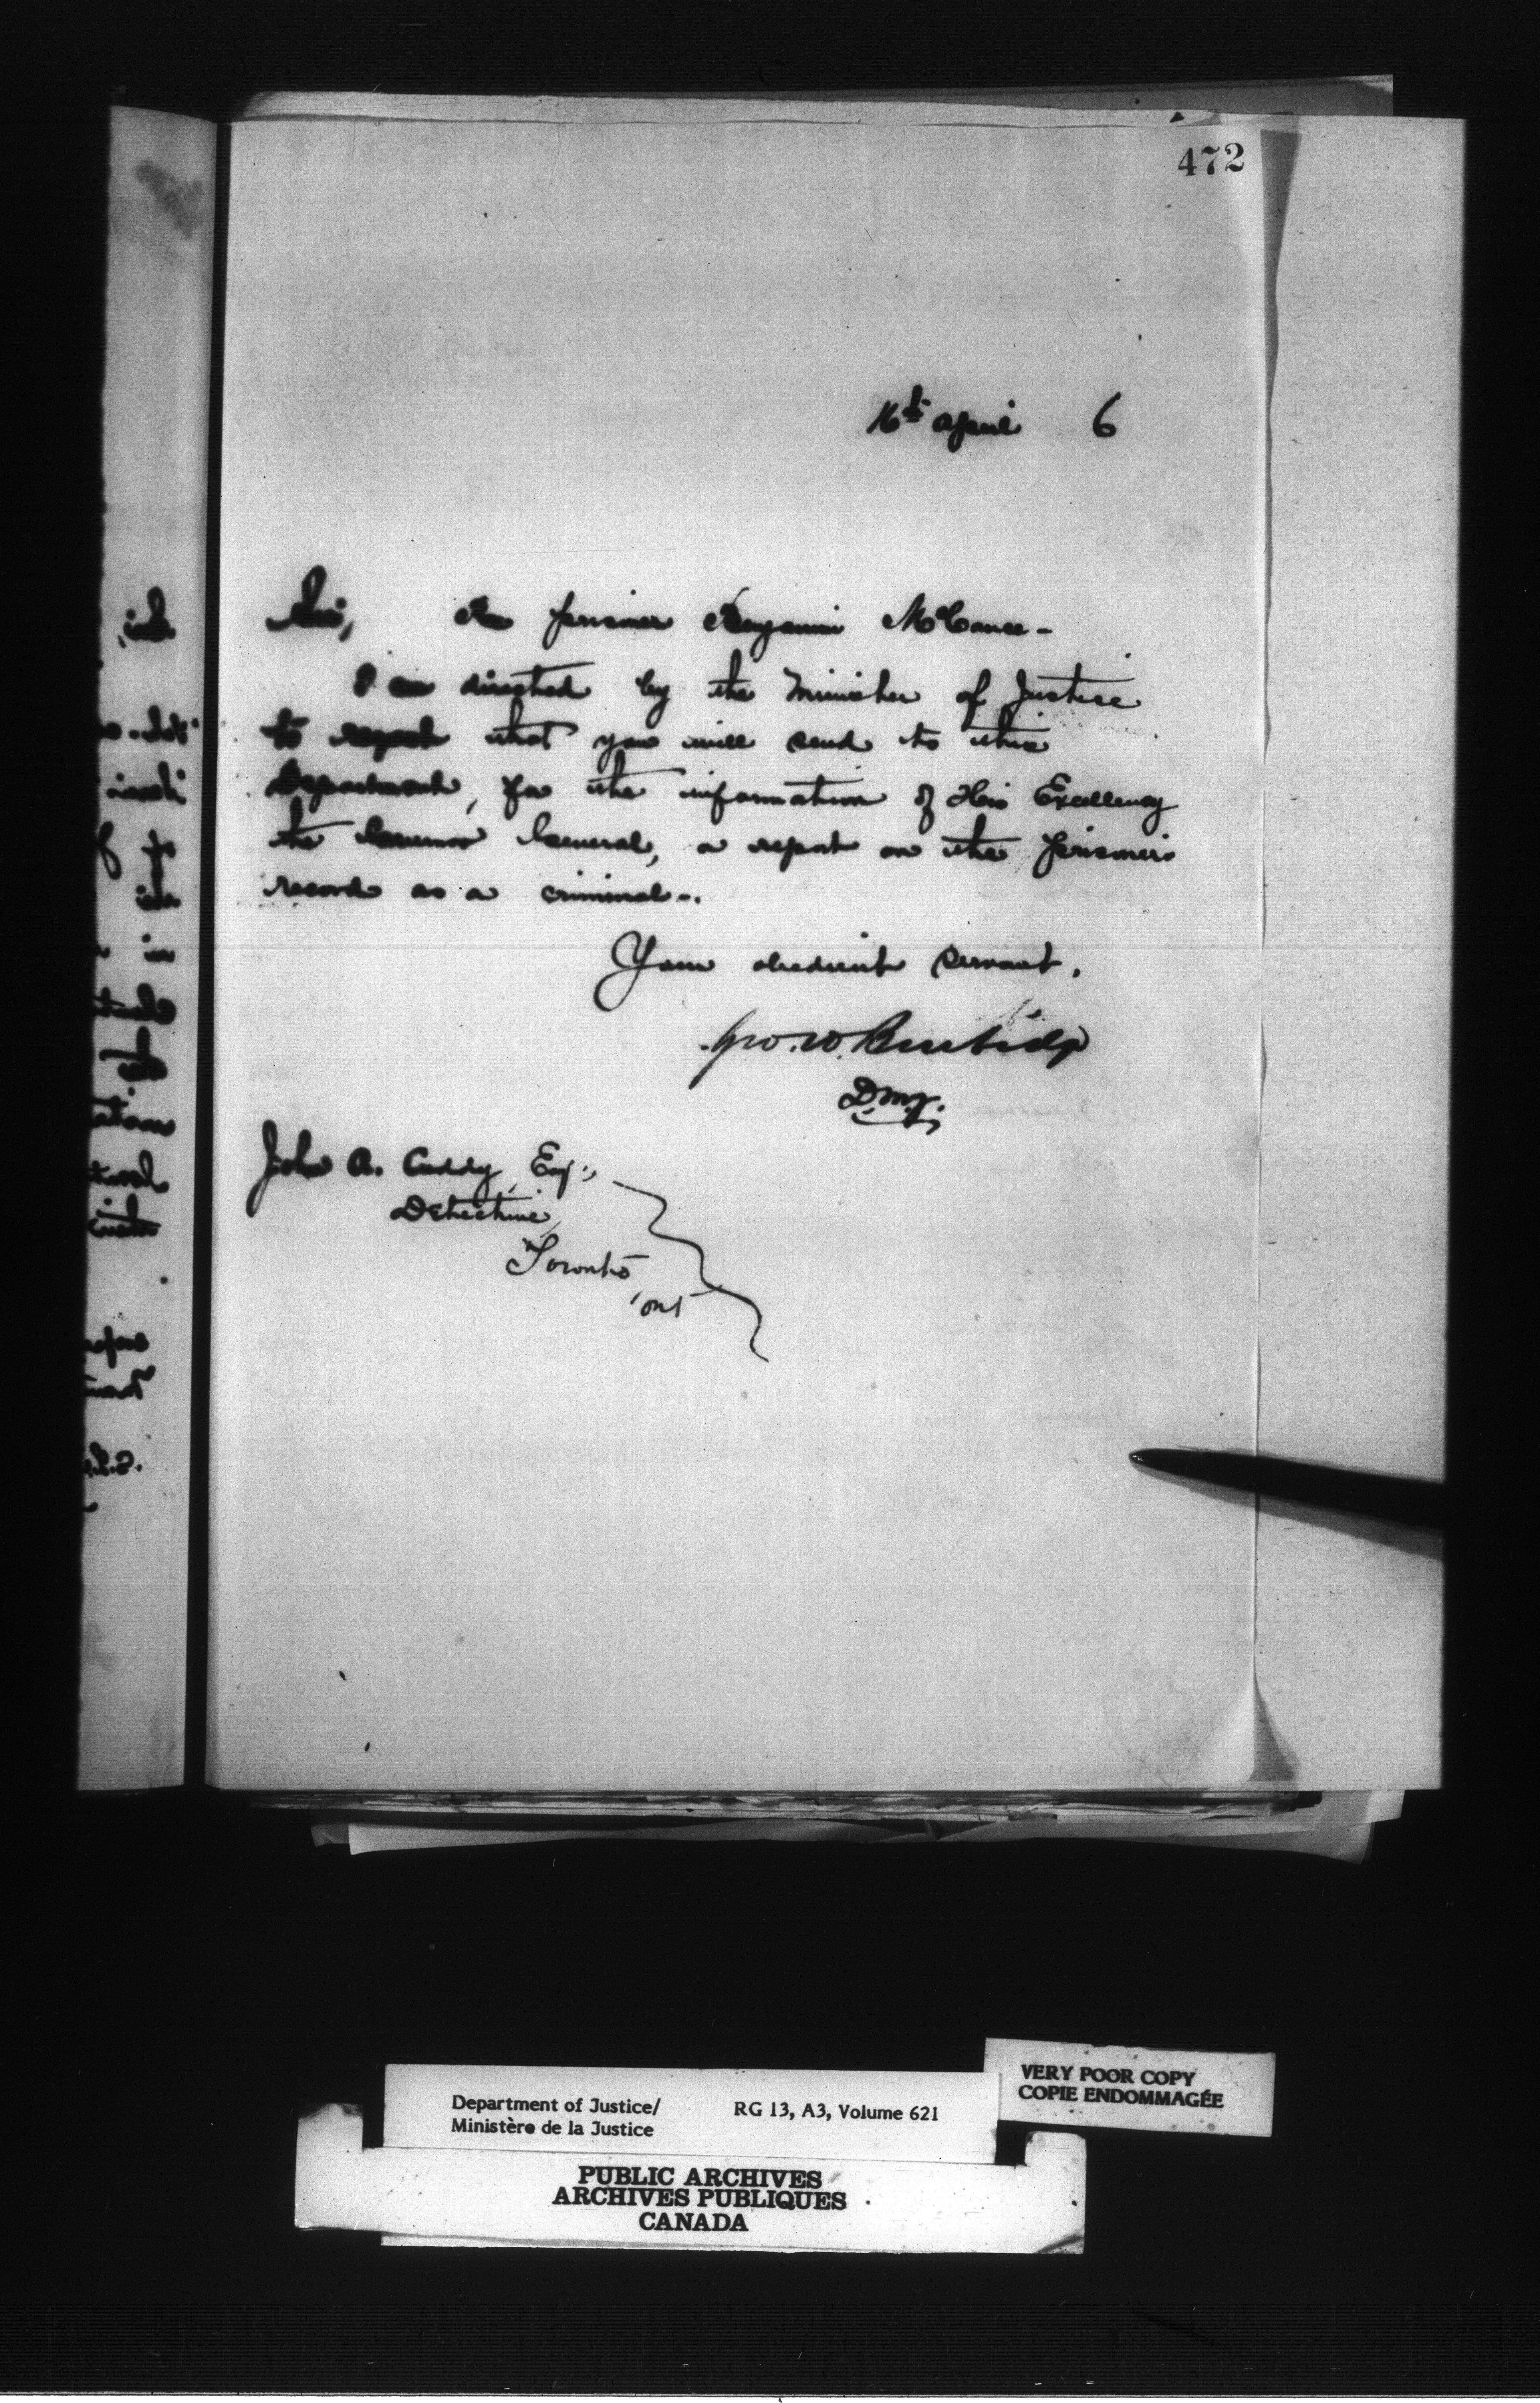 472
16th April 6
Sir, Re prisoner Benjamin McCance -
I am directed by the Minister of Justice
to request that you will send to this
Department, for the information of His Excellency
the Governor General, a report on the prisoner's
record as a criminal -.
Your obedient servant,
Geo. W. Burbidge
D.M.J.
John A. Cuddy, Esq.,
Detective,
Toronto,
Ont
Department of Justice/ RG 13, A3, Volume 621
Ministère de la Justice
VERY POOR COPY
COPIE ENDOMMAGÉE
PUBLIC ARCHIVES
ARCHIVES PUBLIQUES
CANADA